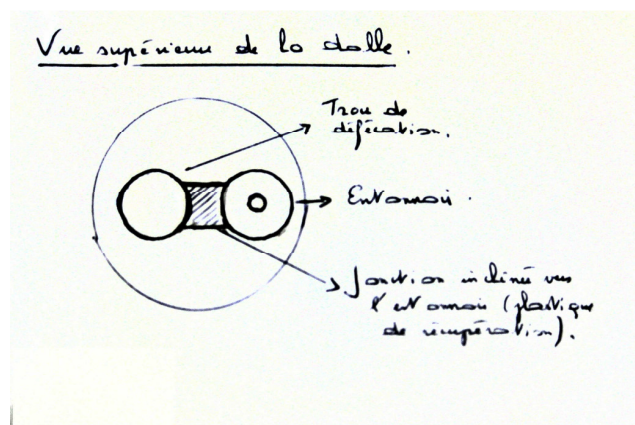 Vue supérieure de la dalle.
Trou de
défécation.
Entonnoir.
Jonction inclinée vers
l'entonnoir (plastique
de récupération).